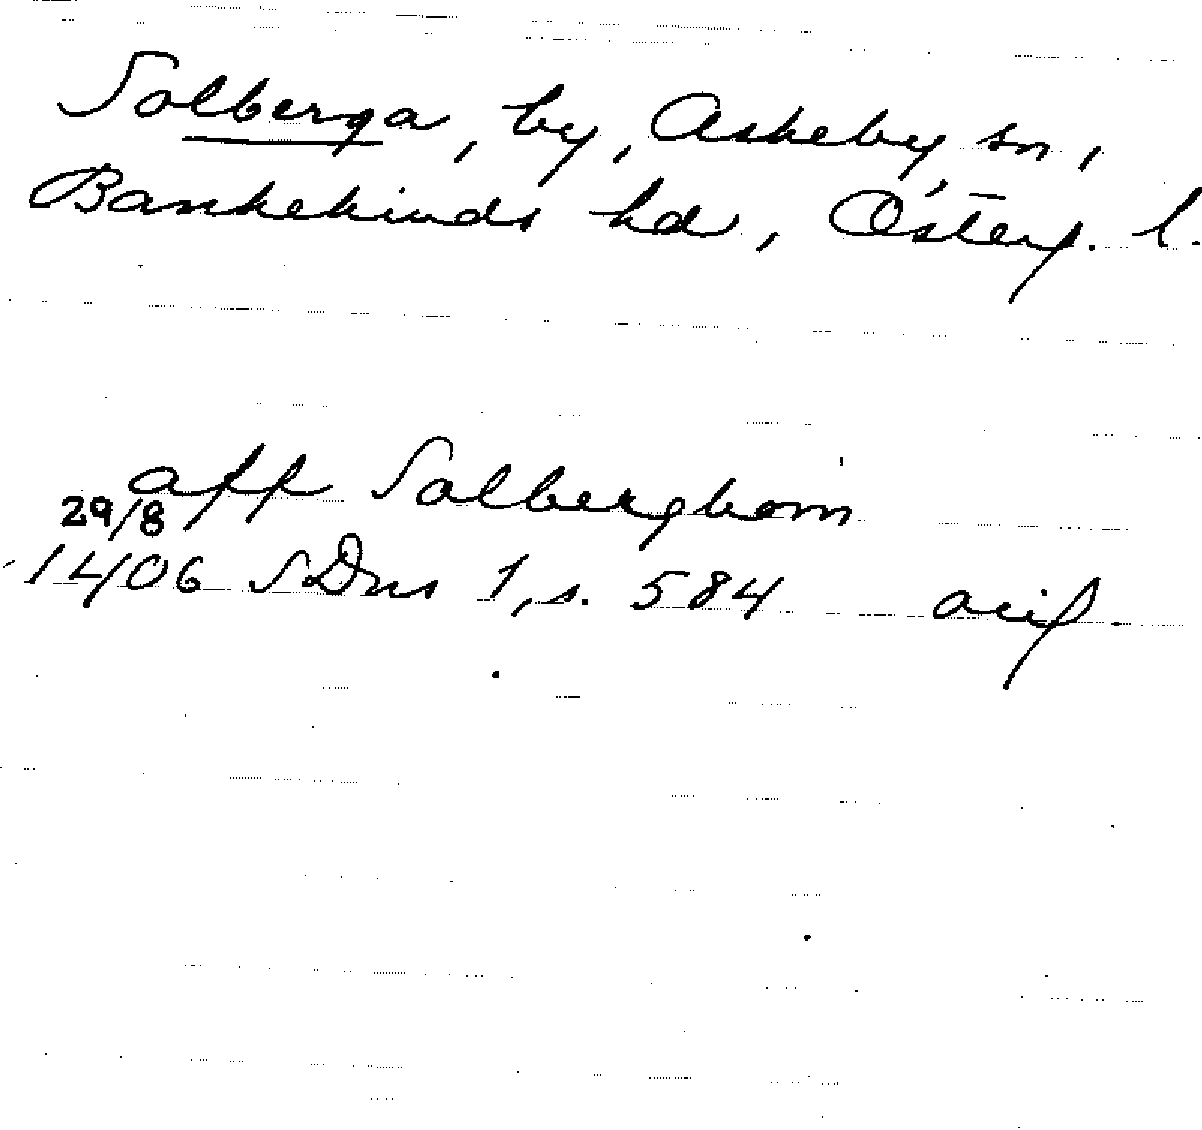 Solberga, by, Askeby, sn,
Bankekinds hd, Österg. l.
aff Solberghom
29/8
1406 SDns 1, s. 584 avif